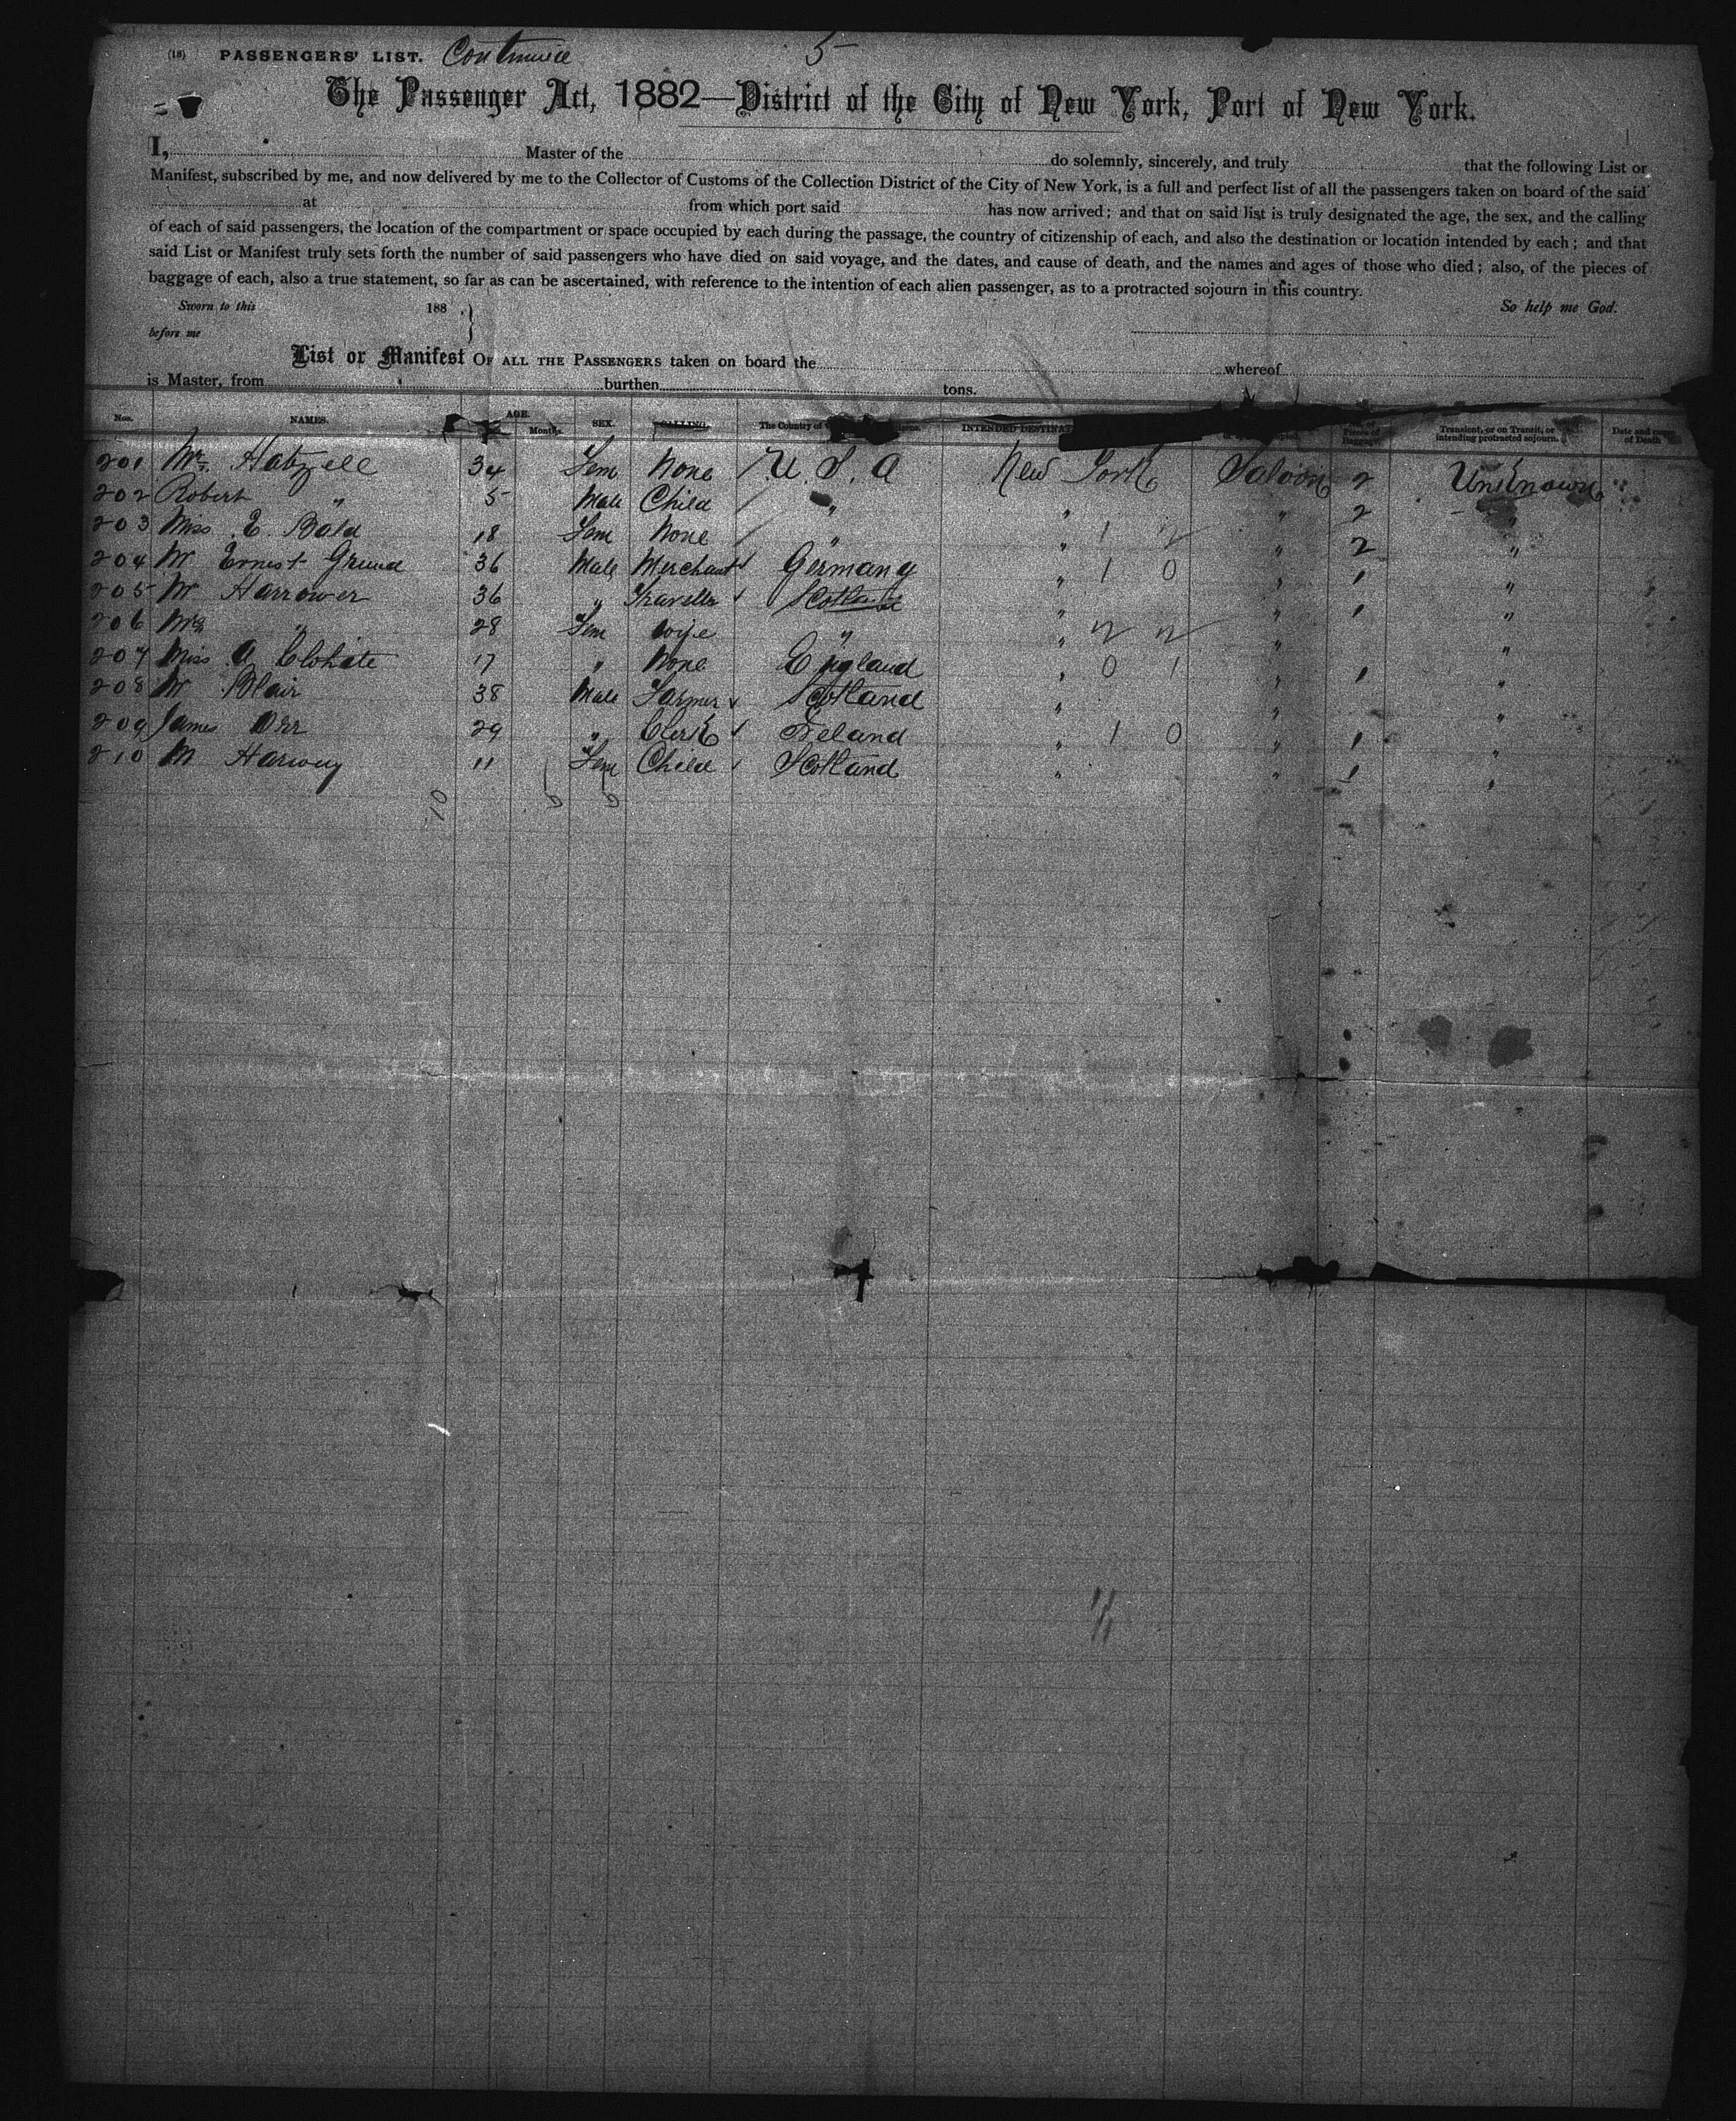 (18) PASSENGERS' LIST. Continued 5
The Passenger Act, 1882—District of the City of New York, Port of New York.
I, Master of the do solemnly, sincerely, and truly that the following List or
Manifest, subscribed by me, and now delivered by me to the Collector of Customs of the Collection District of the City of New York, is a full and perfect list of all the passengers taken on board of the said
at from which port said has now arrived; and that on said list is truly designated the age, the sex, and the calling
of each of said passengers, the location of the compartment or space occupied by each during the passage, the country of citizenship of each, and also the destination or location intended by each; and that
said List or Manifest truly sets forth the number of said passengers who have died on said voyage, and the dates, and cause of death, and the names and ages of those who died; also, of the pieces of
baggage of each, also a true statement, so far as can be ascertained, with reference to the intention of each alien passenger, as to a protracted sojourn in this country.
Sworn to this 188 So help me God.
before me
List or Manifest OF ALL THE PASSENGERS taken on board the whereof
is Master, from burthen tons.
Nos. NAMES. AGE. Months. SEX. CALLING. The Country of INTENDED DESTINAT Pieces of Baggage. Transient, or on Transit, or intending protracted sojourn. Date and cause of Death
201 Mrs. 34 Fem None U. S. A New York Saloon 2 Unknown
202 Robert " 5 Male Child " " " 2 "
203 Miss E. Bald 18 Fem None " " 1 " 2 "
204 Mr Ernest Grund 36 Male Merchant Germany " 1 0 " 1 "
205 Mr Harrower 36 " Traveller Scotland " " 1 "
206 Mrs " 28 Fem Wife " " " "
207 Miss A 17 " None England " 0 1 " 1 "
208 Mr Blair 38 Male Farmer Scotland " " "
209 James Orr 29 " Clerk Ireland " 1 0 " 1 "
210 M 11 Fem Child Scotland " " 1 "
10